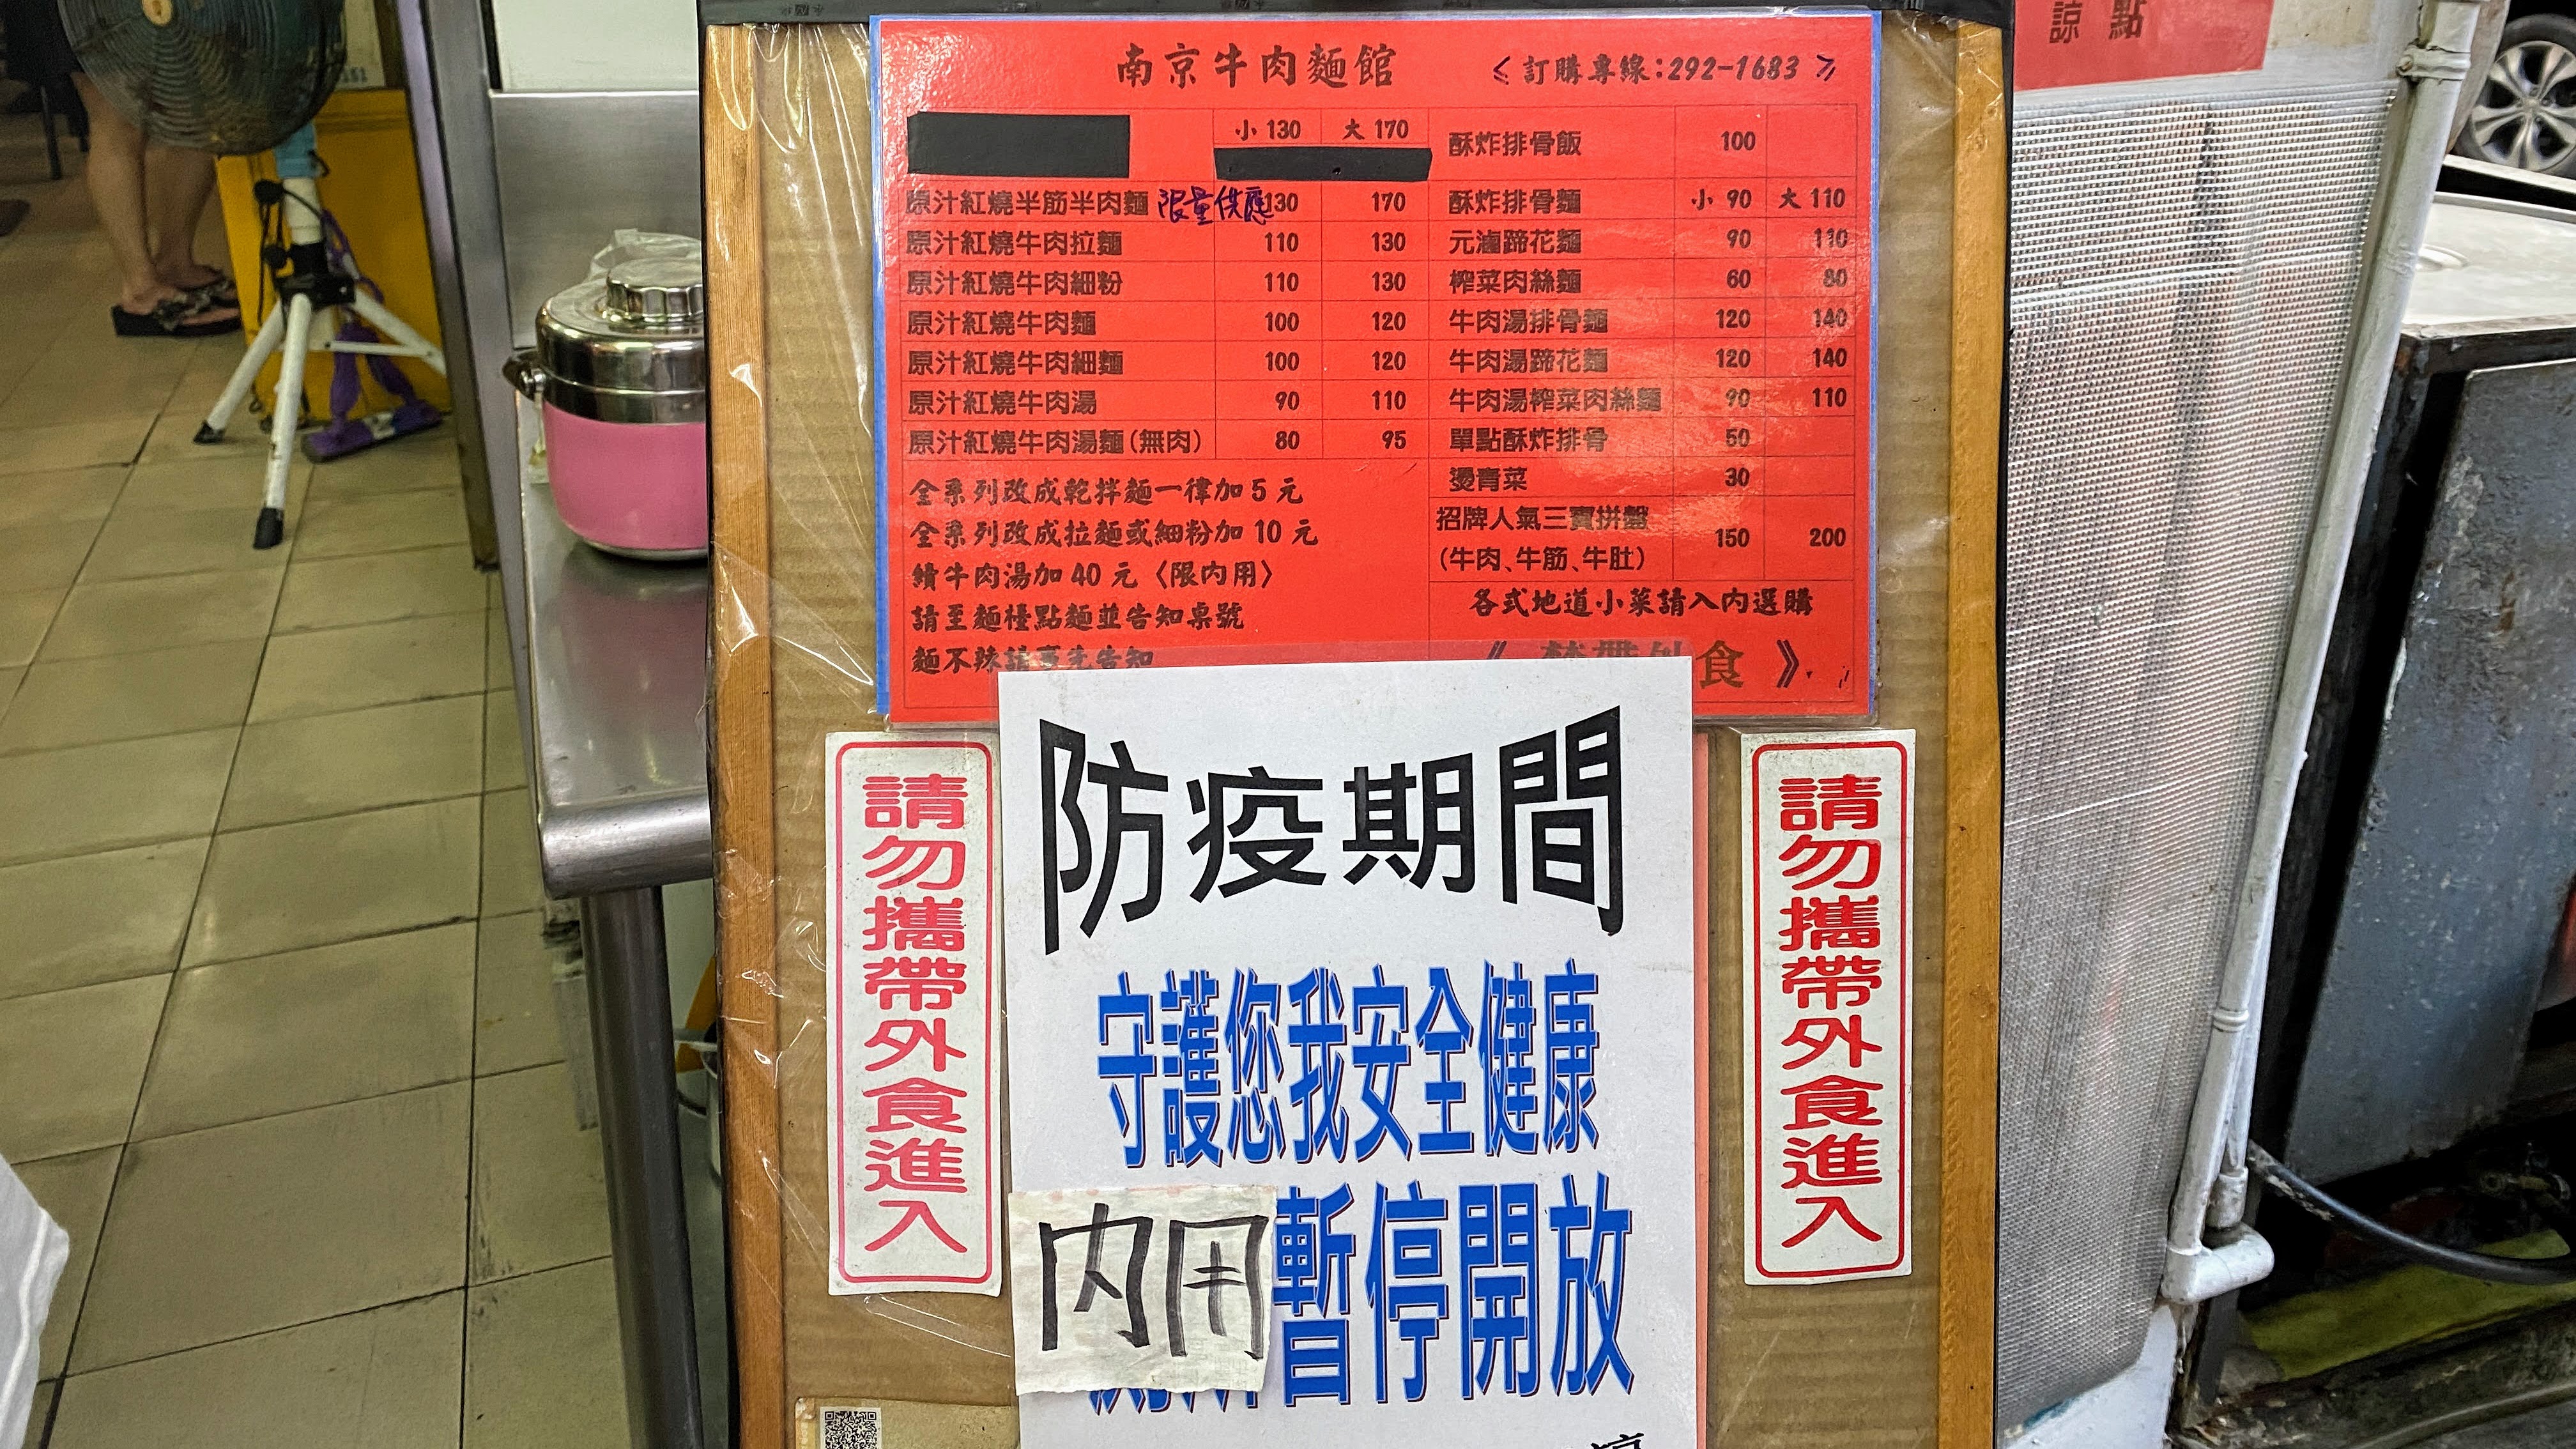 諒 點
南京牛肉麵館
《訂購專線:292-1683》
小 130 大 170
原汁紅燒半筋半肉麵 限量供應 130 170
原汁紅燒牛肉拉麵 110 130
原汁紅燒牛肉細粉 110 130
原汁紅燒牛肉麵 100 120
原汁紅燒牛肉細麵 100 120
原汁紅燒牛肉湯 90 110
原汁紅燒牛肉湯麵(無肉) 80 95
全系列改成乾拌麵一律加 5 元
全系列改成拉麵或細粉加 10 元
續牛肉湯加 40 元〈限內用〉
請至麵檯點麵並告知桌號
麵不辣請事先告知
酥炸排骨飯 100
酥炸排骨麵 小 90 大 110
元滷蹄花麵 90 110
榨菜肉絲麵 60 80
牛肉湯排骨麵 120 140
牛肉湯蹄花麵 120 140
牛肉湯榨菜肉絲麵 90 110
單點酥炸排骨 50
燙青菜 30
招牌人氣三寶拼盤
(牛肉、牛筋、牛肚) 150 200
各式地道小菜請入內選購
《禁帶外食》
請勿攜帶外食進入
防疫期間
守護您我安全健康
內用暫停開放
請勿攜帶外食進入